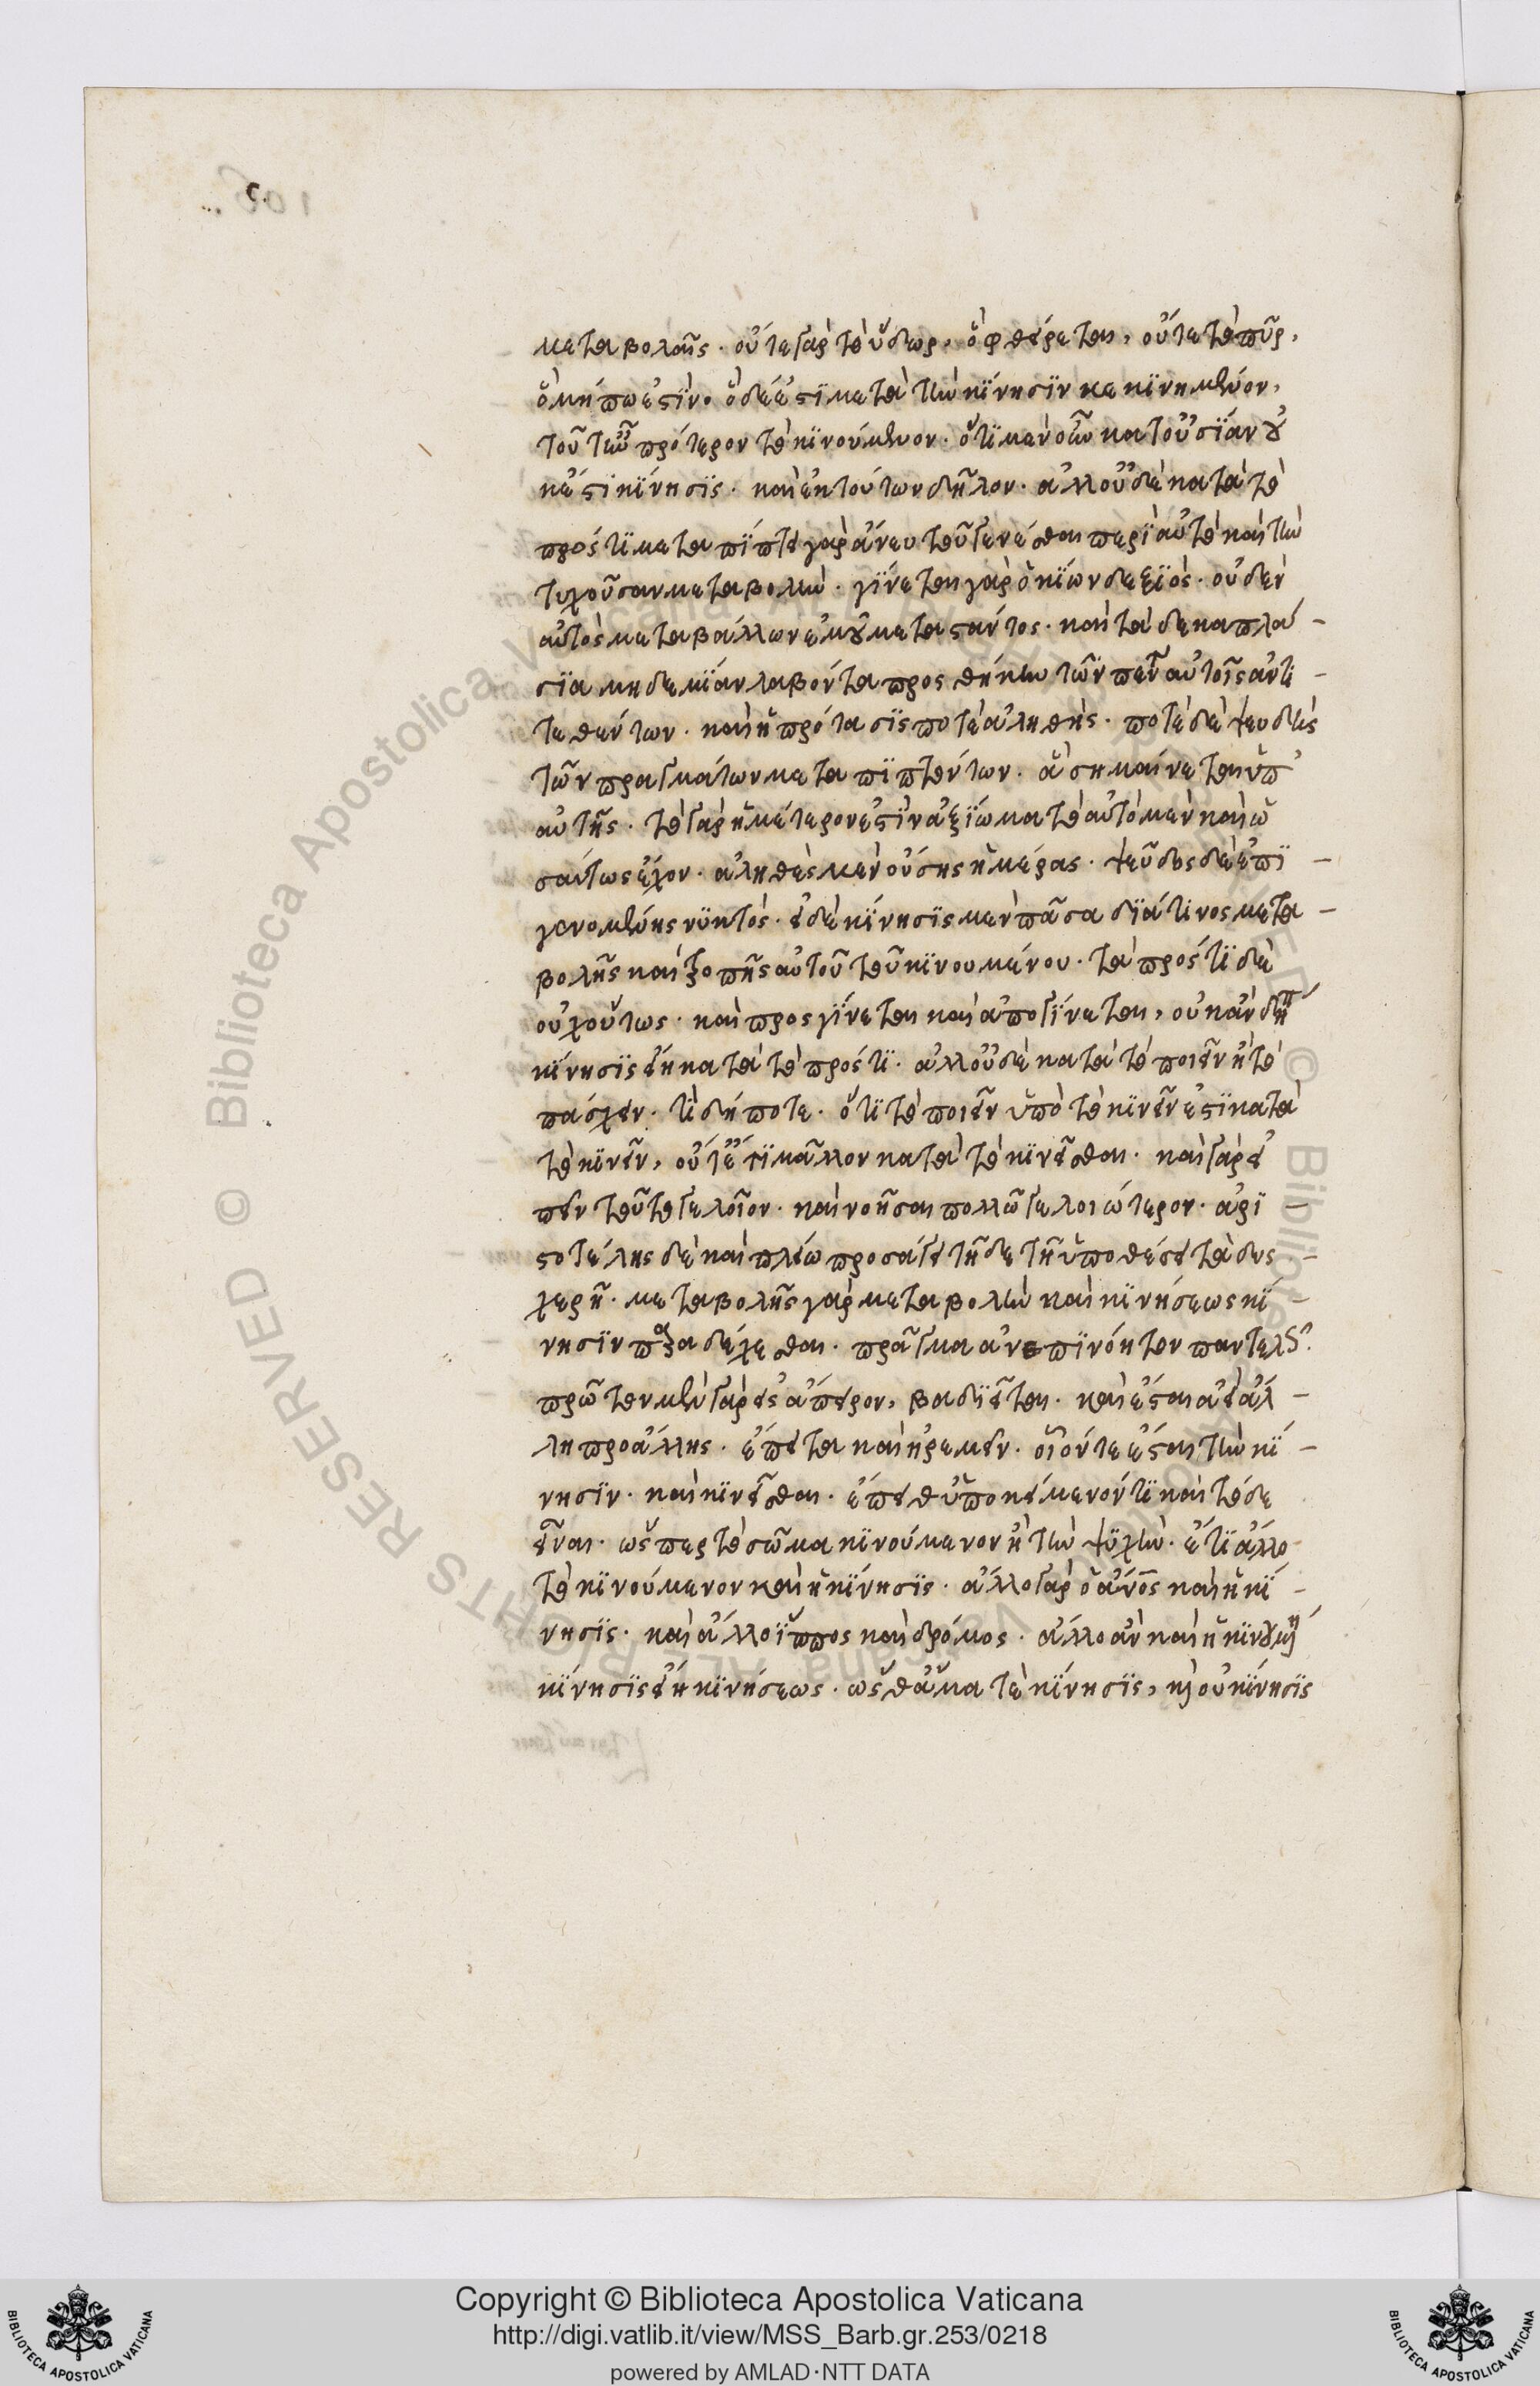 μεταβολαῖς. οὔτε γὰρ τὸ ὕδωρ, ὃ φθείρεται, οὔτε τὸ πῦρ,
ὃ μήπω ἐστίν. ὃ δέ ἐστι μετὰ τὴν κίνησιν κεκινημένον,
τοῦ τῶ πρότερον τὸ κινούμενον. ὅτι μὲν οὖν κατ οὐσίαν οὐ
κ ἔστι κίνησις. καὶ ἐκ τούτων δῆλον. ἀλλ οὐδὲ κατὰ τὸ
πρός τι μεταπίπτει γὰρ ἄνευ τοῦ γενέσθαι περὶ αὐτὸ καὶ τὴν
τυχοῦσαν μεταβολήν. γίνεται γὰρ ὁ κίων δεξιός. οὐδὲν
αὐτὸς μεταβάλλων ἐμοῦ μεταστάντος. καὶ τὰ δεκαπλά -
σια μηδεμίαν λαβόντα προσθήκην τῶν παρ αὐτοῖς ἀντι -
τεθέντων. καὶ ἡ πρότασις ποτὲ ἀληθής. ποτὲ δὲ ψευδὴς
τῶν πραγμάτων μεταπιπτόντων. ἃ σημαίνεται ὑπ
αὐτῆς. τὸ γὰρ ἡμέτερον ἐστὶν ἀξίωμα τὸ αὐτὸ μὲν καὶ ὡ
σαύτως ἔχον. ἀληθὲς μὲν οὔσης ἡμέρας. ψεῦδος δὲ ἐπι -
γενομένης νυκτός. εἰ δὲ κίνησις μὲν πᾶσα διά τινος μετα -
βολῆς καὶ τροπῆς αὐτοῦ τοῦ κινουμένου. τὰ πρός τι δὲ
οὐχ οὕτως. καὶ προσγίνεται καὶ ἀπογίνεται, οὐκ ἂν
κίνησις εἴη κατὰ τὸ πρός τι. ἀλλ οὐδὲ κατὰ τὸ ποιεῖν ἢ τὸ
πάσχειν. τί δήποτε. ὅτι τὸ ποιεῖν ὑπὸ τὸ κινεῖν ἐστὶ κατὰ
τὸ κινεῖν, οὔτ ἔτι μᾶλλον κατὰ τὸ κινεῖσθαι. καὶ γὰρ εἰ
πεῖν τοῦτο γελοῖον. καὶ νοῆσαι πολλῶ γελοιώτερον. ἀρι -
στοτέλης δὲ καὶ πλείω προσάγει τῆδε τῆ ὑποθέσει τὰ δυσ -
χερῆ. μεταβολῆς γὰρ μεταβολὴν καὶ κινήσεως κί -
νησιν παραδέχεσθαι. πρᾶγμα ἀνεπινόητον παντελῶς
πρῶτον μὲν γὰρ εἰς ἄπειρον, βαδιεῖται. καὶ ἔσται ἀεὶ ἄλ -
λη προ ἄλλης. ἔπειτα καὶ ἠρεμεῖν. οἷόν τε ἔσται τὴν κί -
νησιν. καὶ κινεῖσθαι. ἔπειθ ὑποκείμενόν τι καὶ τόδε
εἶναι. ὥσπερ τὸ σῶμα κινούμενον ἢ τὴν ψυχήν. ἔτι ἄλλο
τὸ κινούμενον καὶ ἡ κίνησις. ἄλλο γὰρ ὁ ἄνος καὶ ἡ κί -
νησις. καὶ ἄλλο ἵππος καὶ δρόμος. ἄλλο ἂν καὶ ἡ
κίνησις εἴη κινήσεως. ὥσθ ἅμα τὲ κίνησις, καὶ οὐ κίνησις
Copyright © Biblioteca Apostolica Vaticana
http://digi.vatlib.it/view/MSS_Barb.gr.253/0218
powered by AMLAD·NTT DATA